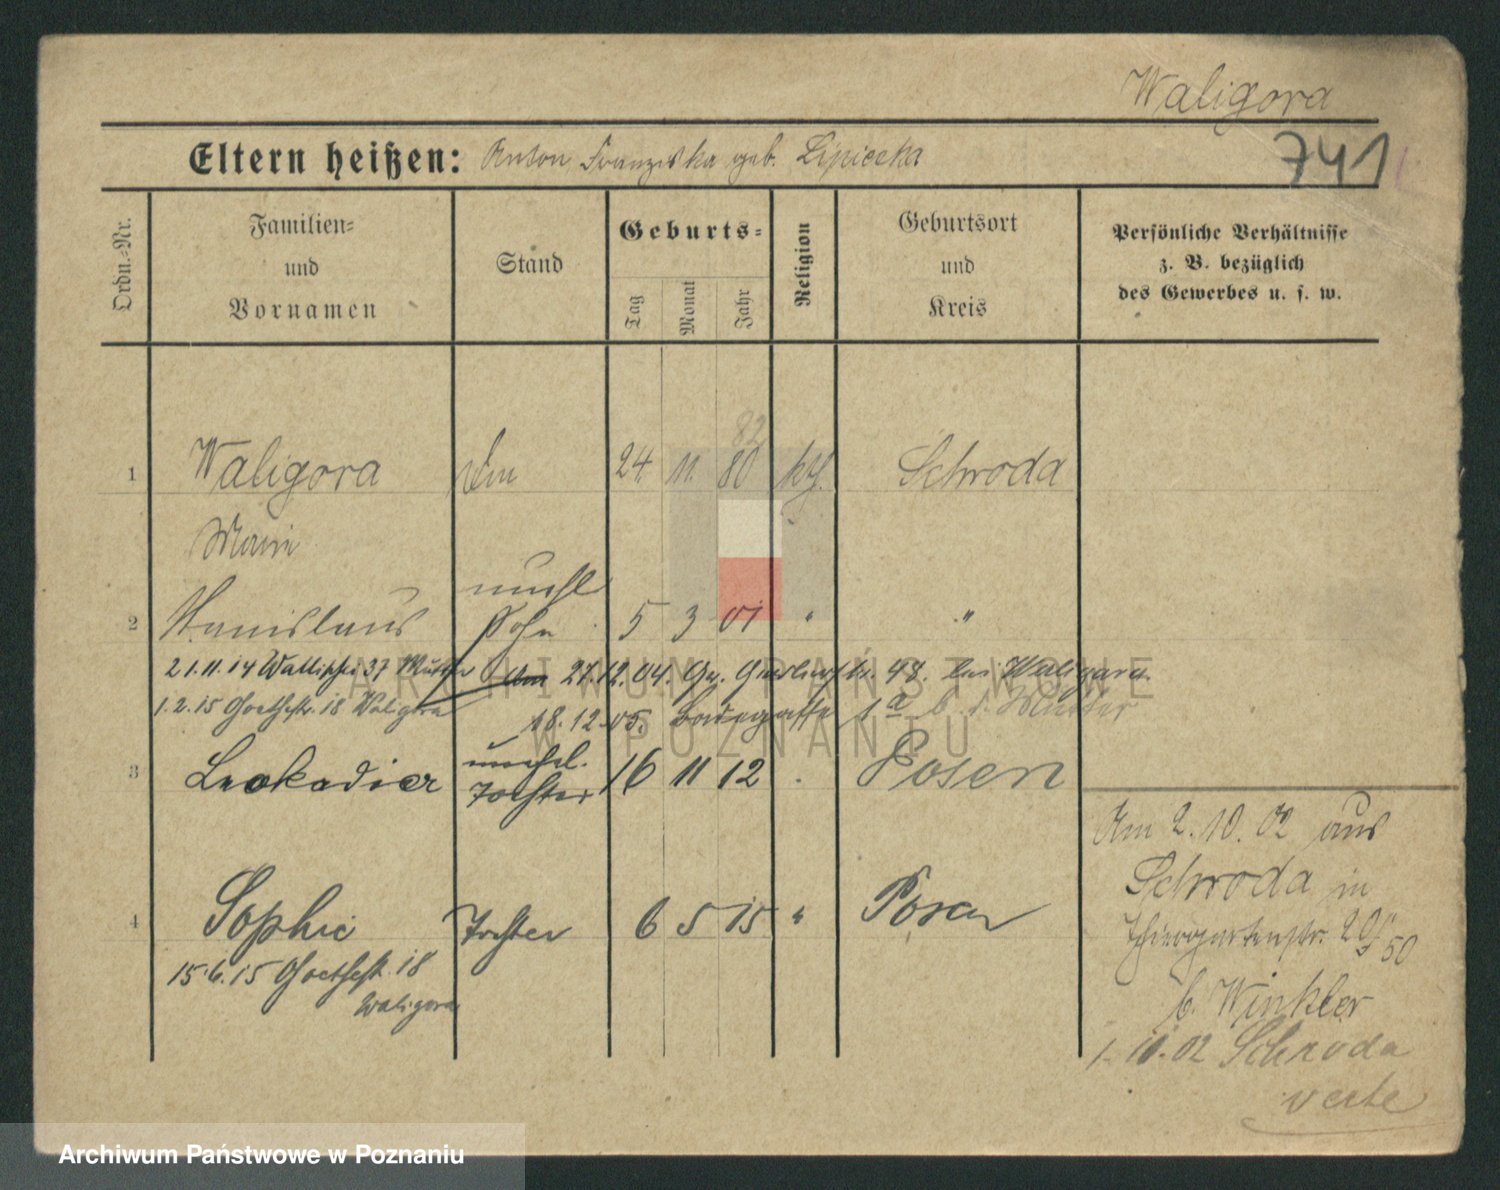 Waligora
741
Eltern heißen: Anton, Franziska geb. Lipiecka
Ordn.-Nr.
Familien= und Vornamen
Stand
Geburts=
Tag
Monat
Jahr
Religion
Geburtsort und Kreis
Persönliche Verhältnisse
z. B. bezüglich
des Gewerbes u. s. w.
82
1 Waligora 24. 11. 80 kth. Schroda
Marie
unehl
2 Stanislaus Sohn 5 3 01 " "
21.11.14 Wallischei 37 Mutter
am 27.12.04. 48. bei Waligora
1.2.15 Goethestr. 18 Waligora
18.12.05. Badegasse 1a b. d. Mutter
unehel.
3 Leokadia Tochter 16 11 12 Posen
Am 2.10.02 aus
Schroda in
Thiergartenstr. 20
50
b. Winkler
1.10.02 Schroda
verte
4 Sophie Tochter 6 5 15 " Posen
15.6.15 Goethestr. 18
Waligora
ARCHIWUM PAŃSTWOWE
W POZNANIU
Archiwum Państwowe w Poznaniu